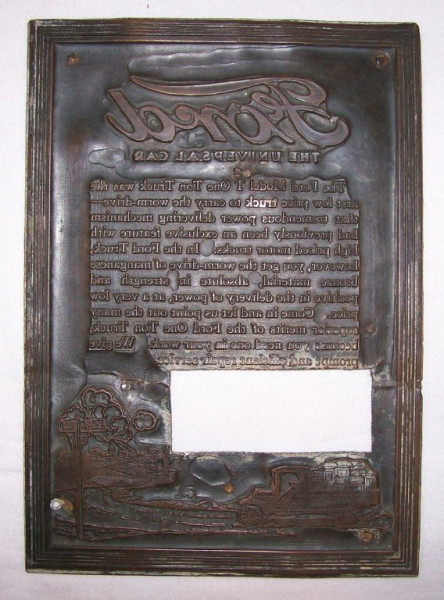 Ford
THE UNIVERSAL CAR
The Ford Model T One Ton Truck was the
first low price truck to carry the worm-drive—
that tremendous power delivering mechanism
had previously been an exclusive feature with
high priced motor trucks. In the Ford Truck,
however, you get the worm-drive of manganese
bronze material, absolute in strength and
positive in the delivery of power, at a very low
price. Come in and let us point out the many
superior merits of the Ford One Ton Truck,
because you need one in your work. We give
prompt and efficient repair service.